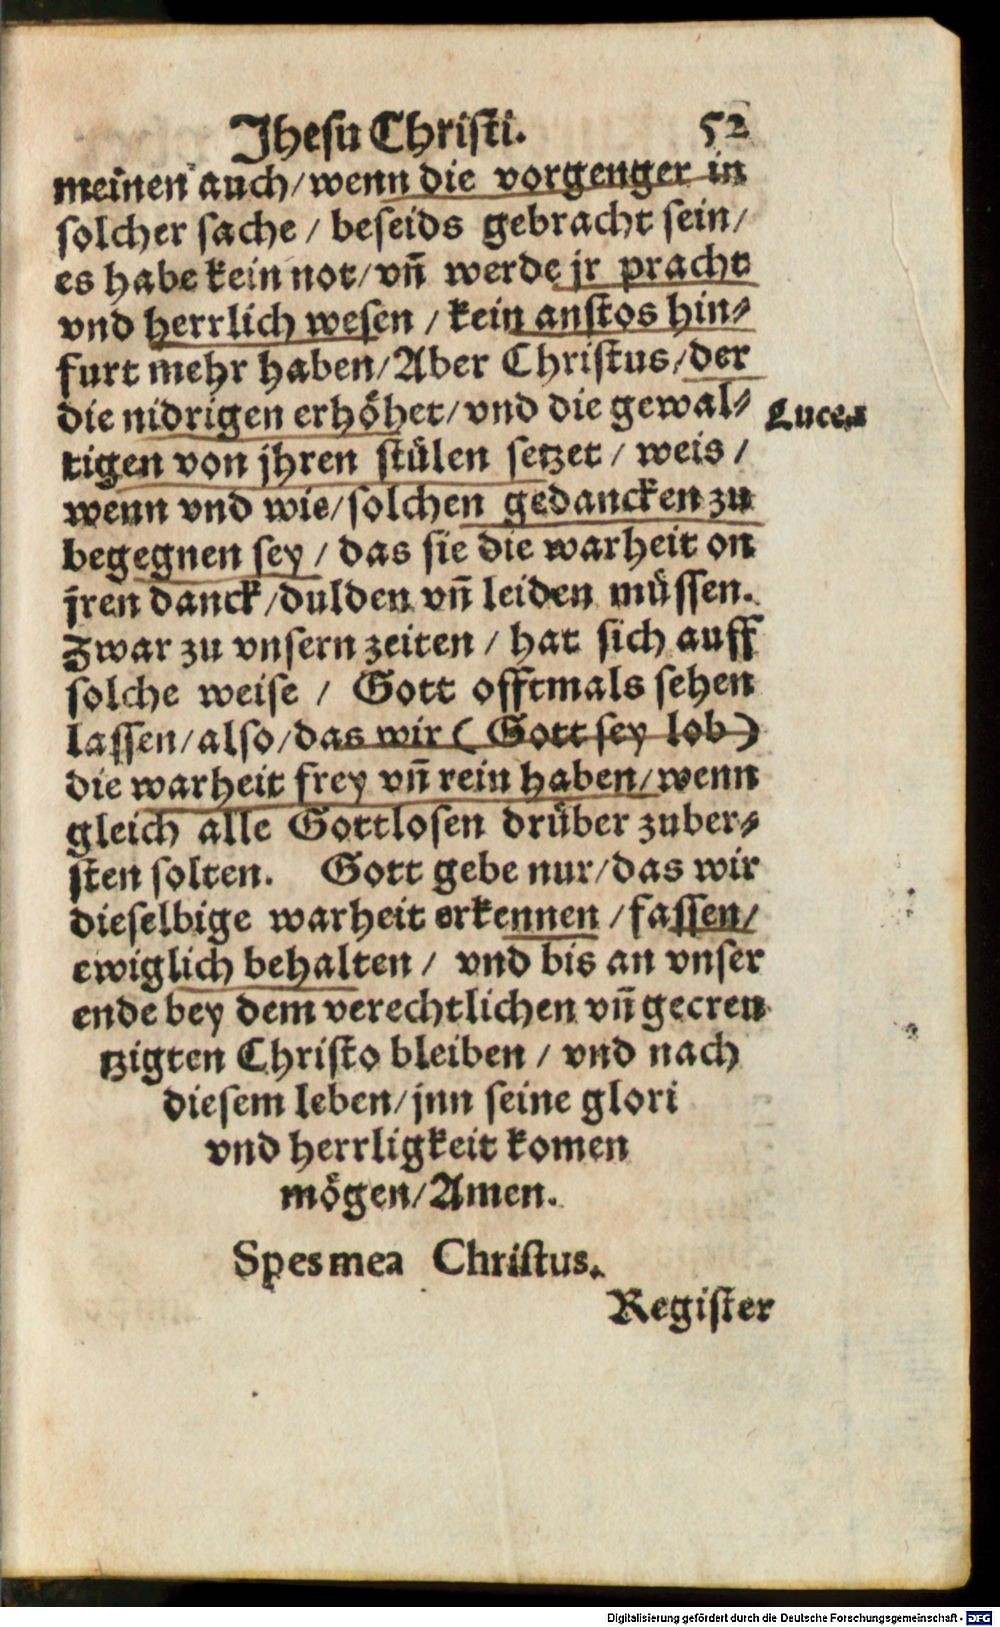 Jhesu Christi. 52
meinen auch/wenn die vorgenger in
solcher sache/ beseids gebracht sein/
es habe kein not/vñ werde jr pracht
vnd herrlich wesen/kein anstos hin⸗
furt mehr haben/Aber Christus/der
die nidrigen erhöhet/vnd die gewal⸗ Luce.1
tigen von jhren stülen setzet/ weis/
wenn vnd wie/solchen gedancken zu
begegnen sey/ das sie die warheit on
jren danck/dulden vñ leiden müssen.
Zwar zu vnsern zeiten/ hat sich auff
solche weise/ Gott offtmals sehen
lassen/also/das wir (Gott sey lob)
die warheit frey vñ rein haben/wenn
gleich alle Gottlosen drüber zuber⸗
sten solten. Gott gebe nur/das wir
dieselbige warheit erkennen/fassen/
ewiglich behalten/ vnd bis an vnser
ende bey dem verechtlichen vñ gecreu
tzigten Christo bleiben/ vnd nach
diesem leben/jnn seine glori
vnd herrligkeit komen
mögen/Amen.
Spes mea Christus.
Register
Digitalisierung gefördert durch die Deutsche Forschungsgemeinschaft - DFG